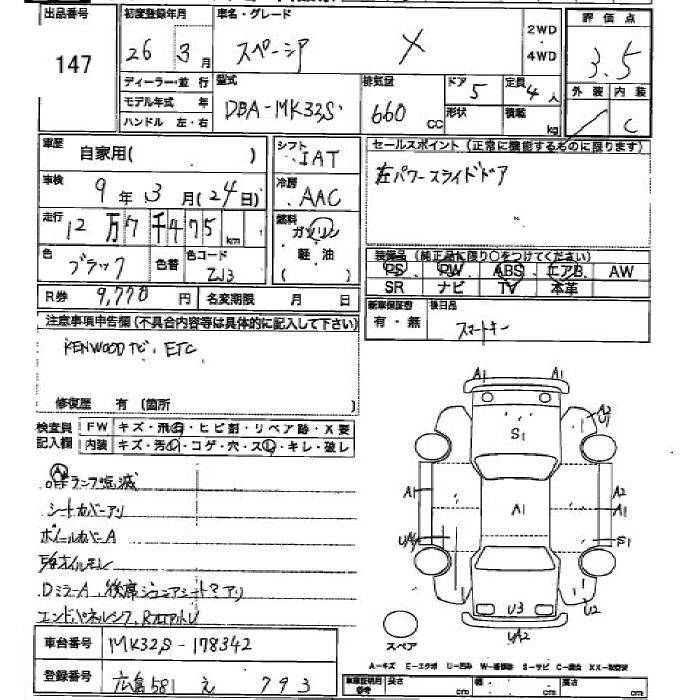 出品番号
147
初度登録年月
26年3月
車名・グレード
スペーシア X
2WD
・
4WD
評価点
3.5
外装 内装
/ C
ディーラー・並行
モデル年式 年
ハンドル 左・右
型式
DBA-MK32S
排気量
660
CC
ドア 5
形状
定員 4人
積載
kg
車歴
自家用( )
車検
9年3月(24日)
走行
12万7千475km
色
ブラック
色替
色コード
ZJ3
シフト
IAT
冷房
AAC
燃料
ガソリン
軽油
( )
セールスポイント (正常に機能するものに限ります)
左パワースライドドア
装備品 (純正品に限り○をつけてください)
PS PW ABS エアB AW
SR ナビ TV 本革
新車保証書
有・無
後日品
スマートキー
R券 9,770円
名変期限 月 日
注意事項申告欄 (不具合内容等は具体的に記入して下さい)
KENWOODナビ、ETC
修復歴 有 (箇所
検査員
記入欄
FW キズ・飛石・ヒビ割・リペア跡・X要
内装 キズ・汚レ・コゲ・穴・スレ・キレ・破レ
シートカバーアリ
ホイールカバーA
DミラーA、後席ジュニアシート
車台番号
MK32S-178342
登録番号
広島 581 え 793
A1 A1
A2
U1
S1
A1
A1
A2
A1
S1
U3
U2
UA2
スペア
A-キズ E-エクボ U-凹み W-補修跡 S-サビ C-腐食 XX-取替済
車庫証明用
参考
長さ cm
幅 cm
高さ cm